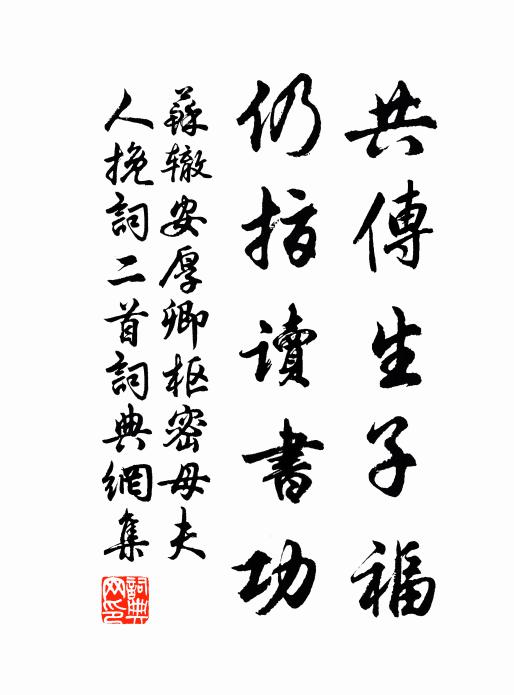 共傳生子福
仍指讀書功
蘇辙安厚卿枢密母夫
人挽詞二首詞典網集
詞典网印